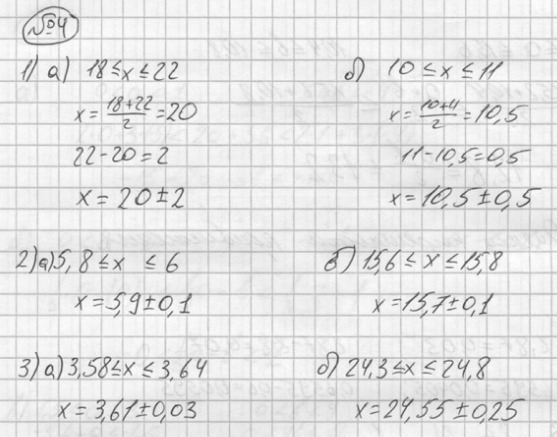 №4
1) а) 18 ≤ x ≤ 22
x = \frac{18+22}{2} = 20
22 - 20 = 2
x = 20 ± 2
б) 10 ≤ x ≤ 11
x = \frac{10+11}{2} = 10,5
11 - 10,5 = 0,5
x = 10,5 ± 0,5
2) а) 5,8 ≤ x ≤ 6
x = 5,9 ± 0,1
б) 15,6 ≤ x ≤ 15,8
x = 15,7 ± 0,1
3) а) 3,58 ≤ x ≤ 3,64
x = 3,61 ± 0,03
б) 24,3 ≤ x ≤ 24,8
x = 24,55 ± 0,25